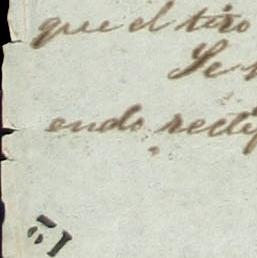 que el tiro
Se
endo recti